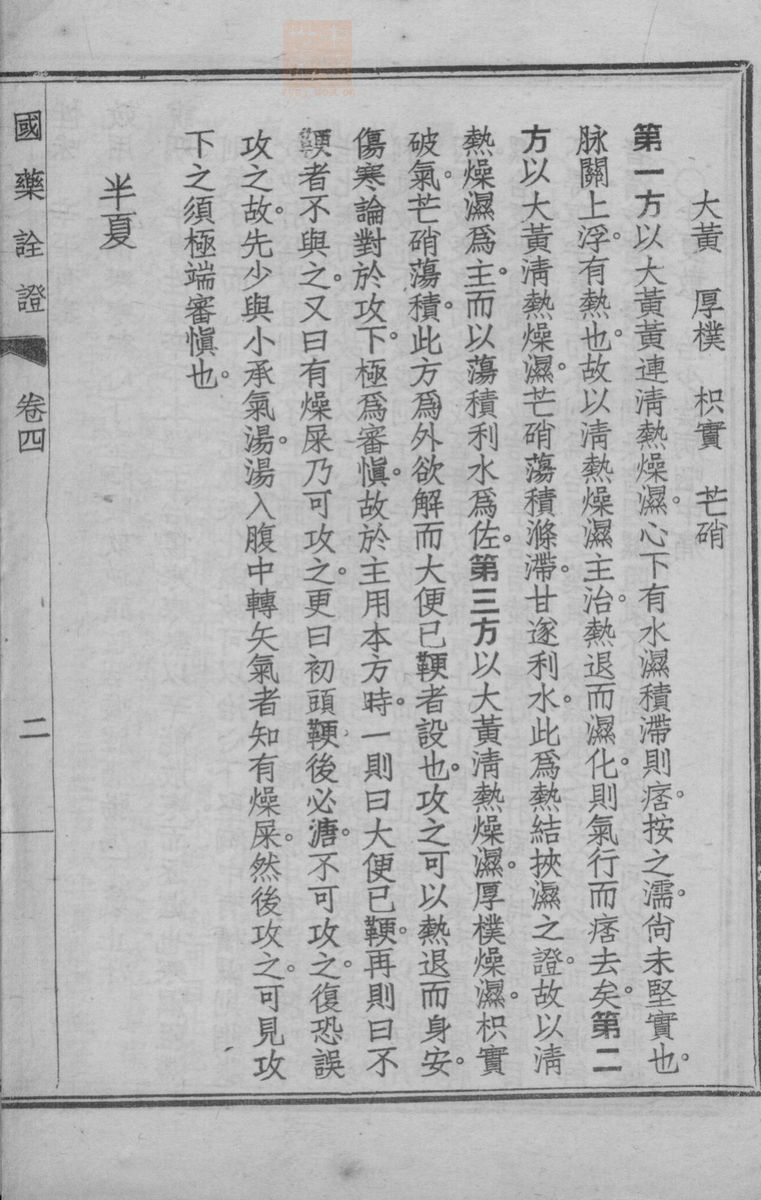 大黃　厚樸　枳實　芒硝
第一方以大黃黃連淸熱燥濕。心下有水濕積滯則痞。按之濡。尙未堅實也。
脉關上浮。有熱也。故以淸熱燥濕主治。熱退而濕化。則氣行而痞去矣。第二
方以大黃淸熱燥濕。芒硝蕩積滌滯。甘遂利水。此爲熱結挾濕之證。故以淸
熱燥濕爲主。而以蕩積利水爲佐。第三方以大黃淸熱燥濕。厚樸燥濕。枳實
破氣。芒硝蕩積。此方爲外欲解而大便已鞕者設也。攻之可以熱退而身安。
傷寒論對於攻下。極爲審愼。故於主用本方時。一則曰大便已鞕。再則曰不
鞕者不與之。又曰有燥屎乃可攻之。更曰初頭鞕後必溏。不可攻之。復恐誤
攻之。故先少與小承氣湯。湯入腹中轉矢氣者知有燥屎。然後攻之。可見攻
下之須極端審愼也。
半夏
國藥詮證　卷四　二